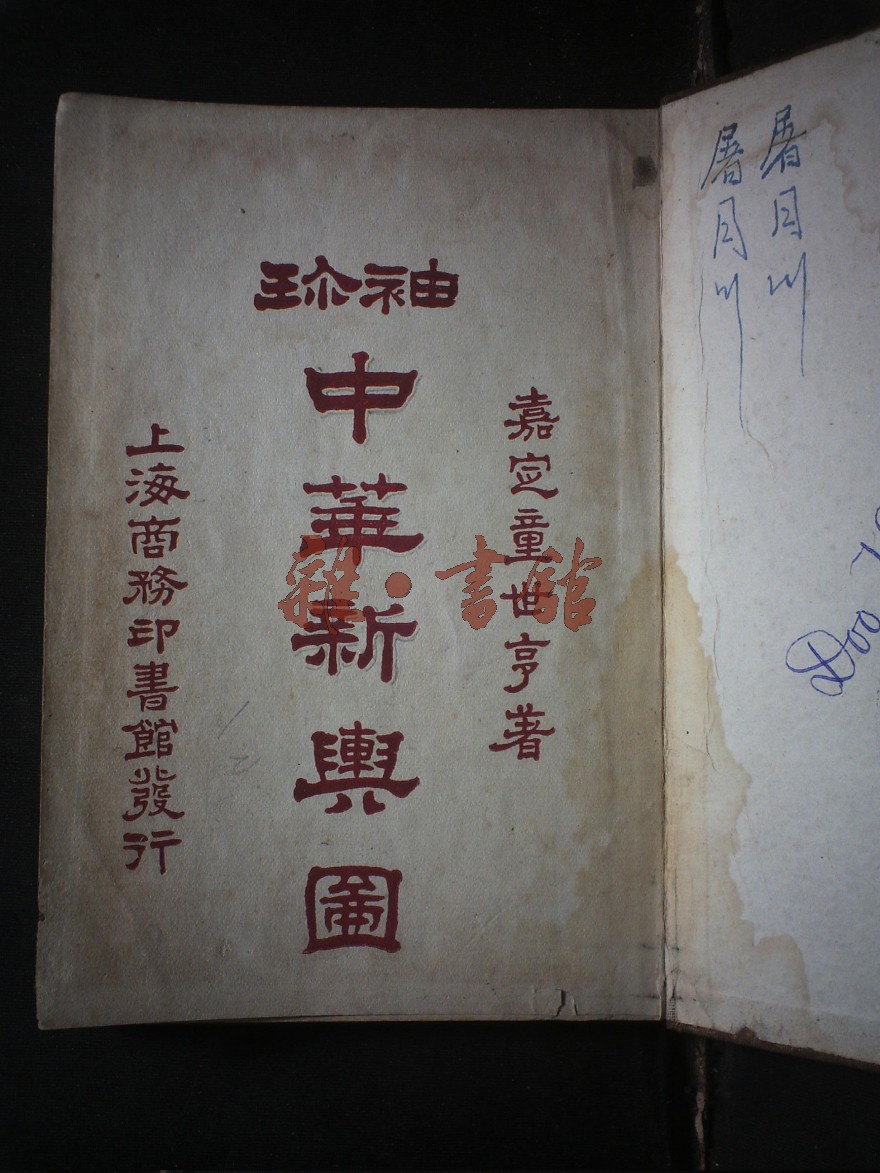 屠月川
屠月川
Doo
袖珎
嘉定童世亨著
中華新輿圖
上海商務印書館發行
雜·書館